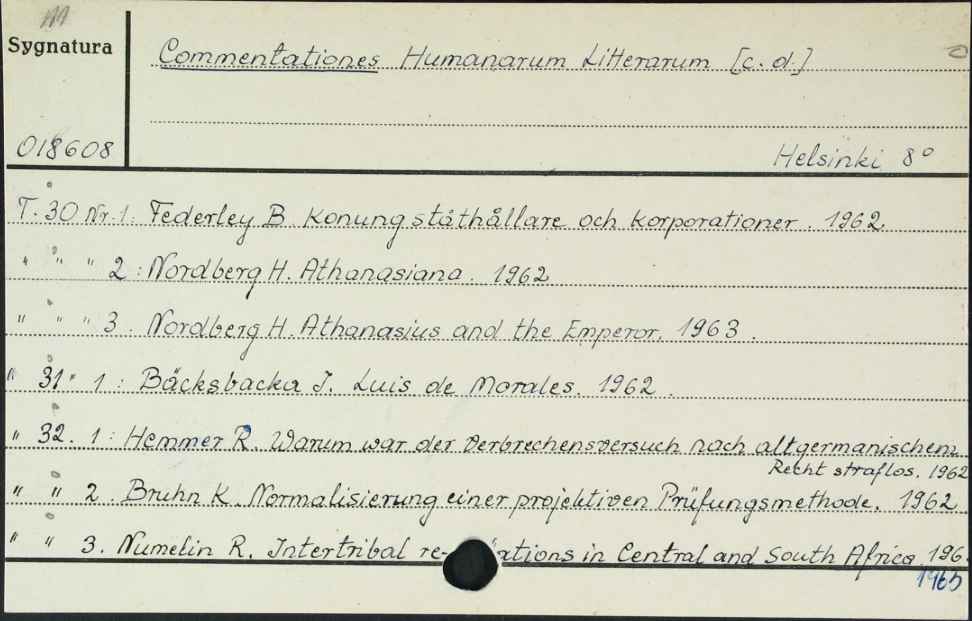 Sygnatura
Commentationes Humanarum Litterarum [c.d.]
018608
Helsinki 8°
T. 30 Nr. 1: Federley B. Konung ståthållare och korporationer. 1962.
" " " 2: Nordberg H. Athanasiana. 1962
" " " 3. Nordberg H. Athanasius and the Emperor. 1963.
" 31 " 1: Bäcksbacka J. Luis de Morales. 1962.
" 32. 1: Hemmer R. Warum war der Verbrechensversuch nach altgermanischem
Recht straflos. 1962
" " 2. Bruhn K. Normalisierung einer projektiven Prüfungsmethode. 1962.
" " 3. Numelin R. Intertribal in Central and South Africa 196